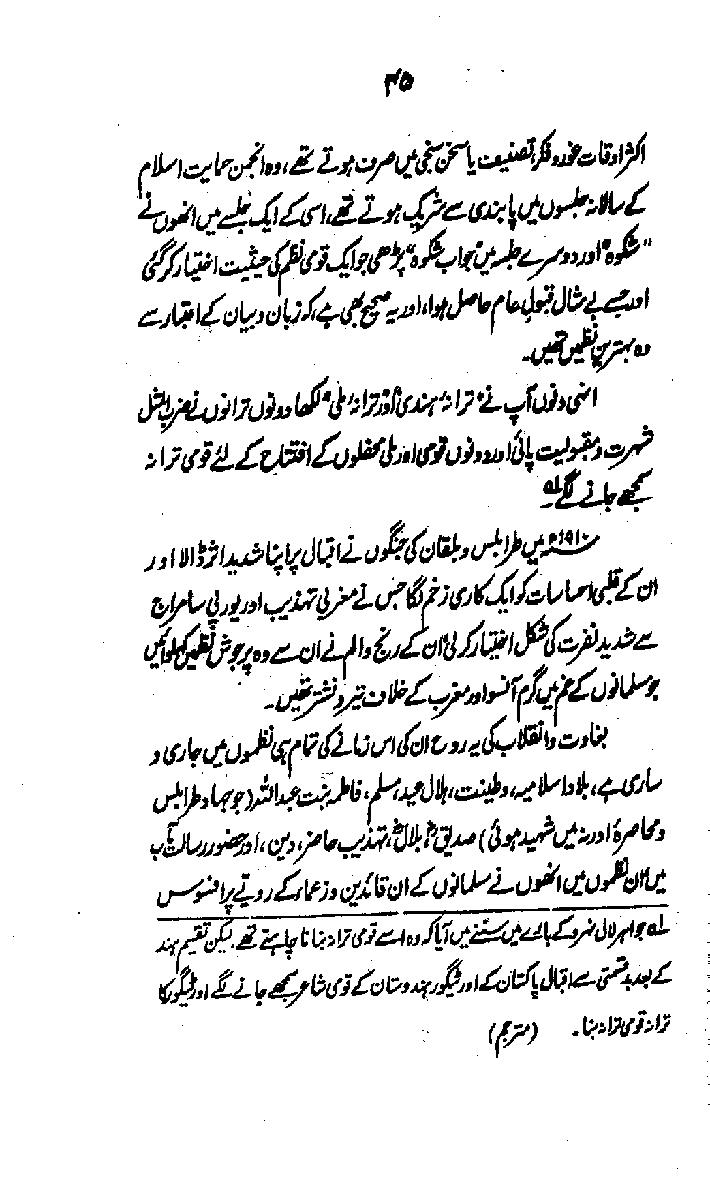 ۳۵
اکثر اوقات غور و فکر، تصنیف یا سخن سنجی میں صرف ہوتے تھے، وہ انجمن حمایت اسلام
کے سالانہ جلسوں میں پابندی سے شریک ہوتے تھے، اسی کے ایک جلسے میں انھوں نے
"شکوہ" اور دوسرے جلسہ میں "جواب شکوہ" پڑھی جو ایک قومی نظم کی حیثیت اختیار کر گئی
اور جسے بے مثال قبول عام حاصل ہوا، اور یہ صحیح بھی ہے، کہ زبان و بیان کے اعتبار سے
وہ بہترین نظمیں تھیں۔
انھی دنوں آپ نے "ترانۂ ہندی" اور "ترانۂ ملی" لکھا دونوں ترانوں نے ضرب المثل
شہرت و مقبولیت پائی اور دونوں قومی اور ملی محفلوں کے افتتاح کے لئے قومی ترانہ
سمجھے جانے لگے۔لہ
۱۹۱۰ء میں طرابلس و بلقان کی جنگوں نے اقبال پر اپنا شدید اثر ڈالا اور
ان کے قلبی احساسات کو ایک کاری زخم لگا جس نے مغربی تہذیب اور یورپی سامراج
سے شدید نفرت کی شکل اختیار کر لی، ان کے رنج و الم نے ان سے وہ پرجوش نظمیں کہلوائیں
جو مسلمانوں کے غم میں گرم آنسو اور مغرب کے خلاف تیر و نشتر تھیں۔
بغاوت و انقلاب کی یہ روح ان کی اس زمانے کی تمام ہی نظموں میں جاری و
ساری ہے، بلاد اسلامیہ، وطنیت، ہلال عید، مسلم، فاطمہ بنت عبداللہ (جو جہاد طرابلس
و محاصرۂ ادرنہ میں شہید ہوئی) صدیقؓ، بلالؓ، تہذیب حاضر، دین، اور حضور رسالت مآب
میں، ان نظموں میں انھوں نے مسلمانوں کے ان قائدین و زعماء کے رویے پر افسوس
لہ جواہر لال نہرو کے بارے میں سننے میں آیا کہ وہ اسے قومی ترانہ بنانا چاہتے تھے۔ لیکن تقسیم ہند
کے بعد بدقسمتی سے اقبال پاکستان کے اور ٹیگور ہندوستان کے قومی شاعر سمجھے جانے لگے اور ٹیگور کا
ترانہ قومی ترانہ بنا۔ (مترجم)